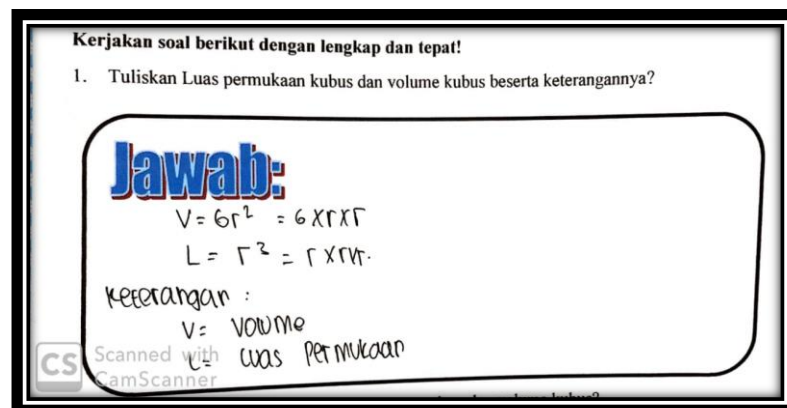 Kerjakan soal berikut dengan lengkap dan tepat!
1. Tuliskan Luas permukaan kubus dan volume kubus beserta keterangannya?
Jawab:
V = 6r² = 6 x r x r
L = r³ = r x r x r.
Keterangan :
V = Volume
L = Luas permukaan
CS Scanned with
CamScanner
kubus?